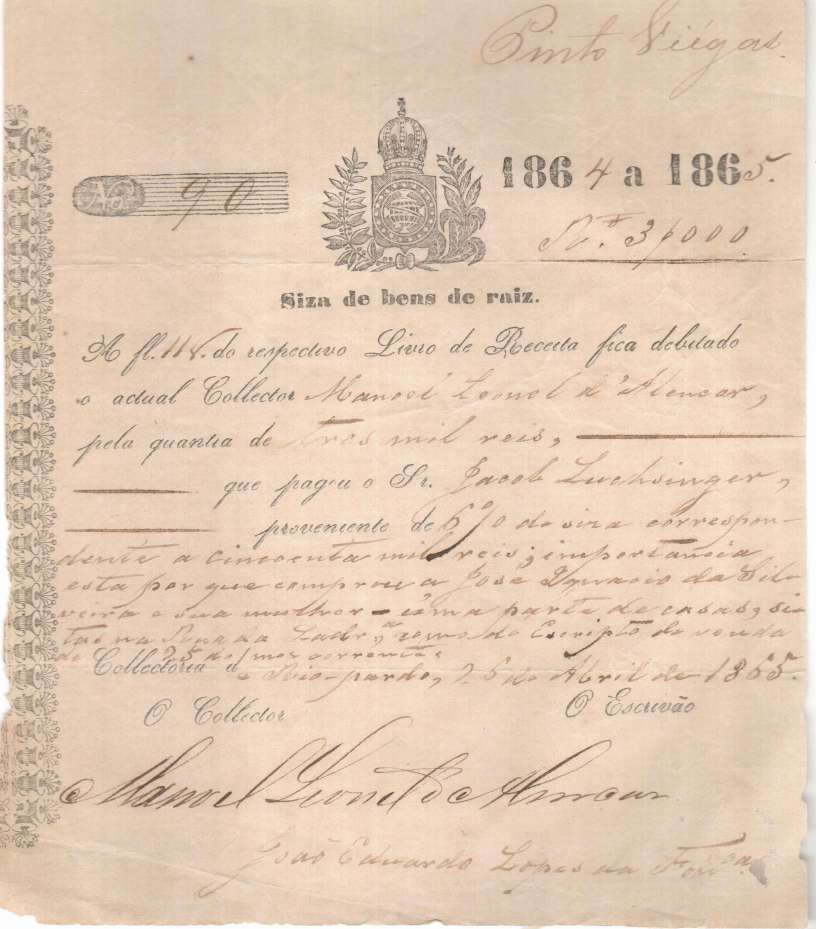 Pinto Viégas.
Nº 90
1864 a 1865.
Rs. 3$000
Siza de bens de raiz.
A fl. 118. do respectivo Livro de Receita fica debitado
o actual Collector Manoel Leonel d'Alencar,
pela quantia de tres mil reis,
que pagou o Sr. Jacob Luchsinger,
proveniente de 6% de siza correspon-
dente a cincoenta mil reis; importancia
esta por que comprou a José Ignacio da Sil-
veira e sua mulher - uma parte de casas, si-
tas na do Escripto de venda
de 25 do mes corrente.
Collectoria de Rio-pardo, 26 de Abril de 1865.
O Collector O Escrivão
Manoel Leonel d'Alencar
João Eduardo Lopes da Fonca.